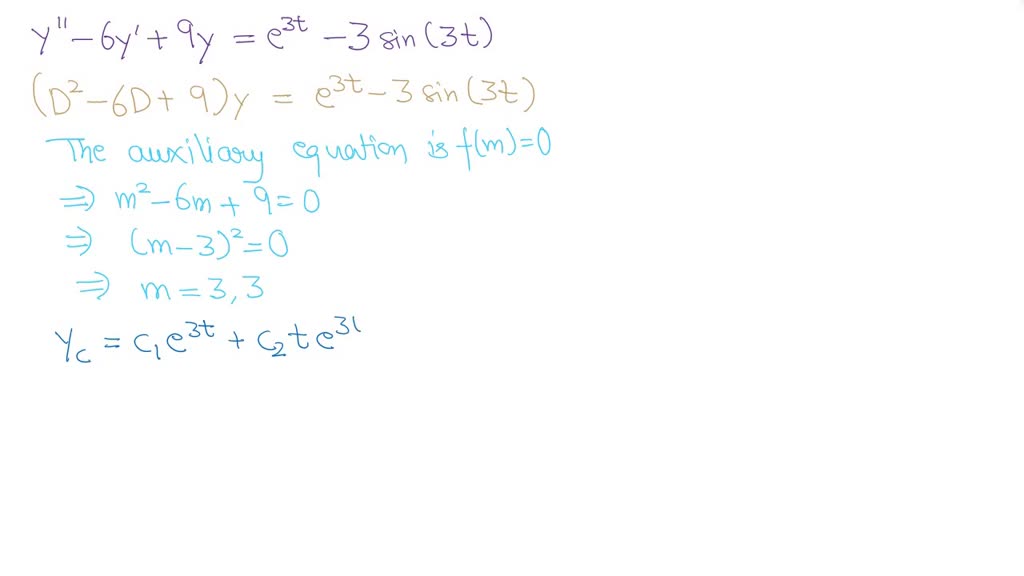 y'' - 6y' + 9y = e^{3t} - 3 sin(3t)
(D² - 6D + 9)y = e^{3t} - 3 sin(3t)
The auxiliary equation is f(m)=0
⇒ m² - 6m + 9 = 0
⇒ (m - 3)² = 0
⇒ m = 3, 3
y_c = c₁e^{3t} + c₂te^{3